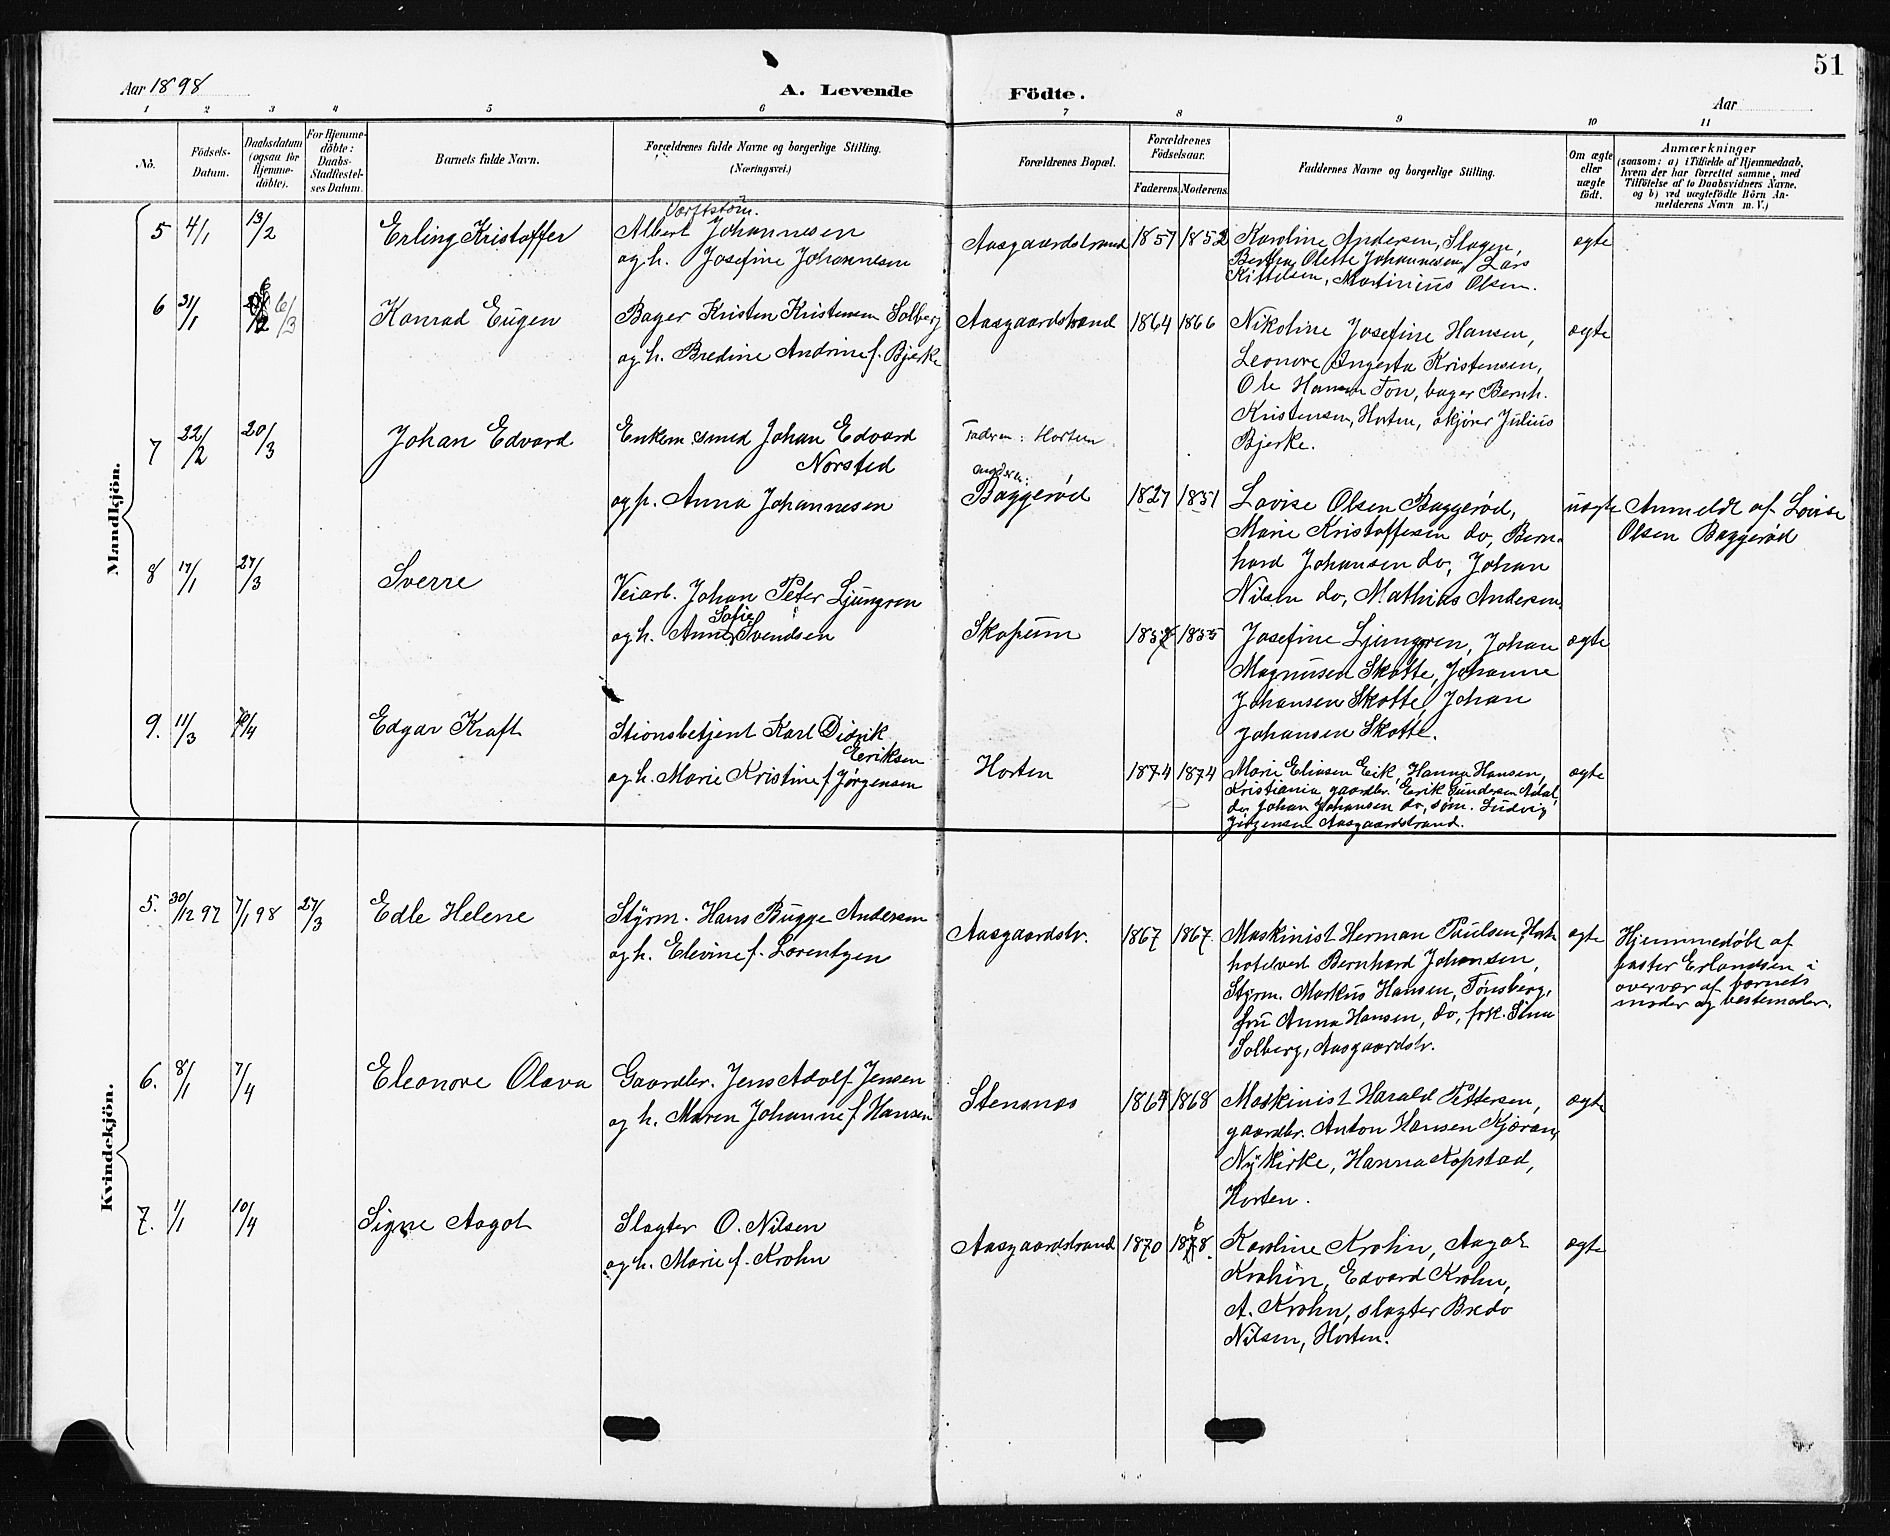 51
Aar 1898
A. Levende Födte.
Aar
1 2 3 4 5 6 7 8 9 10 11
No.
Födsels-Datum.
Daabsdatum (ogsaa for Hjemmedöbte).
For Hjemmedöbte: Daabs-Stadfæstelses Datum.
Barnets fulde Navn.
Forældrenes fulde Navne og borgerlige Stilling.
(Næringsvei.)
Forældrenes Bopæl.
Forældrenes Födselsaar.
Faderens. Moderens.
Faddernes Navne og borgerlige Stilling.
Om ægte eller uægte födt.
Anmærkninger
(saasom: a) i Tilfælde af Hjemmedaab,
hvem der har forrettet samme, med
Tilföielse af to Daabsvidners Navne.
og b) ved uægtefödte Börn Anmelderens Navn m. V.)
Mandkjön.
5 4/1 13/2 Erling Kristoffer
Værftstøm.
Albert Johannesen
og h. Josefine Johannesen
Aasgaardstrand 1857 1852
Karoline Andersen, Slagen,
Bertha Olette Johannesen, Lars
Kittelsen, Martinius Olsen.
ægte
6 31/1 6/3 Konrad Eugen
Bager Kristen Kristensen Solberg
og h. Bredine Andrine f. Bjerke
Aasgaardstrand 1864 1866
Nikoline Josefine Hansen,
Leonore Ingerta Kristensen,
Ole Hansen Ton, bager Bernh.
Kristensen, Horten, skjører Julius
Bjerke.
ægte
7 22/2 20/3 Johan Edvard
Enkem. smed Johan Edvard
Norsted
og p. Anna Johannesen
Faderen: Horten
moderen:
Baggerød 1827 1851
Lovise Olsen Baggerød,
Marie Kristoffersen do, Bernhard Johansen do, Johan
Nilsen do, Mathias Andersen.
uægte
Anmeldt af Lovise
Olsen Baggerød
8 17/1 27/3 Sverre
Veiarb. Johan Peter Ljungren
og h. Anne Sofie Svendsen
Skopum 1855
Josefine Ljungren, Johan
Magnusen Skotte, Johanne
Johansen Skotte, Johan
Johansen Skotte.
ægte
9. 11/3 /4 Edgar Kraft
Stionsbetjent Karl Didrik
Eeriksen
og h. Marie Kristine f. Jørgensen
Horten 1874 1874
Marie Eliasen Eik, Hanna Hansen,
Kristiania gaardbr. Erik Gundersen
do Johan Johansen do, søm. Ludvig
Jørgensen Aasgaardstrand.
ægte
Kvindekjön.
5. 30/12 97 7/1 98 27/3 Edle Helene
Styrm. Hans Bugge Andersen
og h. Elevine f. Lorentzen
Aasgaardstr. 1867 1867.
Maskinist Herman Paulsen,
hotelvert Bernhard Johansen,
Styrm. Markus Hansen, Tønsberg,
fru Anna Hansen, do, frk. Sina
Solberg, Aasgaardstr.
ægte
Hjemmedøbt af
pastor Erlandsen i
overvær af barnets
moder og bestemoder.
6. 8/1 7/4 Eleonore Olava
Gaardbr. Jens Adolf Jensen
og h. Maren Johanne f. Hansen
Stensnes 1868
Maskinist Harald Pettersen,
gaardbr. Anton Hansen Kjæran,
Nykirke, Hanna Kopstad,
Horten.
ægte
7. 1/1 10/4 Signe Aagot
Slagter O. Nilsen
og h. Marie f. Krohn
Aasgaardstrand 1870
Karoline Krohn, Aagot
Krohn, Edvard Krohn,
A. Krohn, slagter Bredo
Nilsen, Horten.
ægte